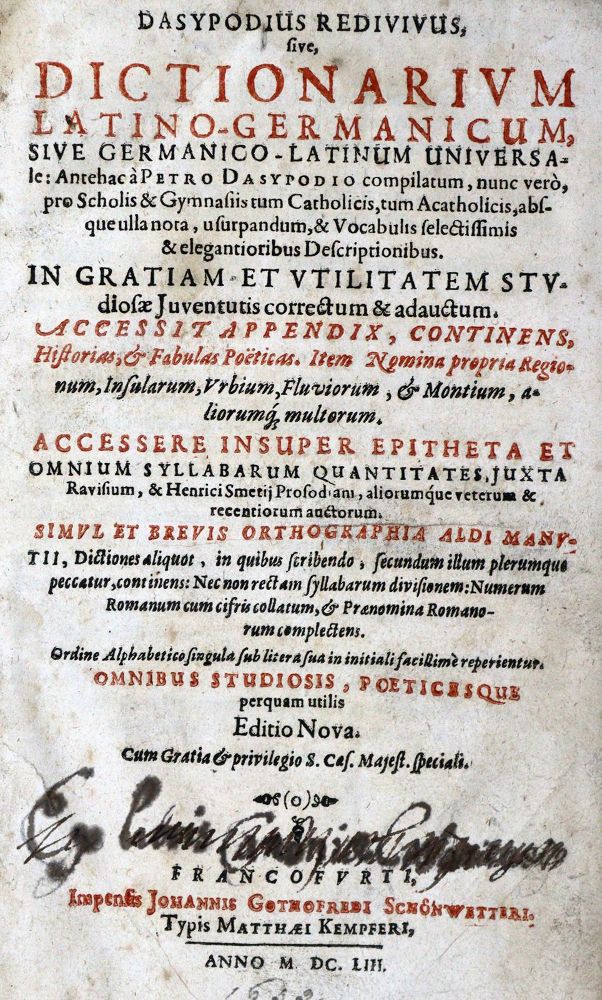 DASYPODIUS REDIVIVUS,
ſive,
DICTIONARIVM
LATINO-GERMANICUM,
SIVE GERMANICO-LATINUM UNIVERSA-
le: Antehac à PETRO DASYPODIO compilatum, nunc verò,
pro Scholis & Gymnaſiis tum Catholicis, tum Acatholicis, abſ-
que ulla nota, uſurpandum, & Vocabulis ſelectiſſimis
& elegantioribus Deſcriptionibus.
IN GRATIAM ET VTILITATEM STV-
dioſæ Juventutis correctum & adauctum.
ACCESSIT APPENDIX, CONTINENS,
Hiſtorias, & Fabulas Poëticas. Item Nomina propria Regio-
num, Inſularum, Vrbium, Fluviorum, & Montium, a-
liorumq́; multorum.
ACCESSERE INSUPER EPITHETA ET
OMNIUM SYLLABARUM QUANTITATES, JUXTA
Raviſium, & Henrici Smetij Proſodiam, aliorumque veterum &
recentiorum auctorum.
SIMVL ET BREVIS ORTHOGRAPHIA ALDI MANV-
TII, Dictiones aliquot, in quibus ſcribendo, ſecundum illum plerumque
peccatur, continens: Nec non rectam ſyllabarum diviſionem: Numerum
Romanum cum cifris collatum, & Prænomina Romano-
rum complectens.
Ordine Alphabetico ſingula ſub litera ſua in initiali facillimè reperientur.
OMNIBUS STUDIOSIS, POETICESQUE
perquam utilis
Editio Nova.
Cum Gratia & privilegio S. Cæſ. Majeſt. ſpeciali.
(o)
FRANCOFVRTI,
Impenſis JOHANNIS GOTHOFREDI SCHÖNWETTERI.
Typis MATTHÆI KEMPFERI,
ANNO M. DC. LIII.